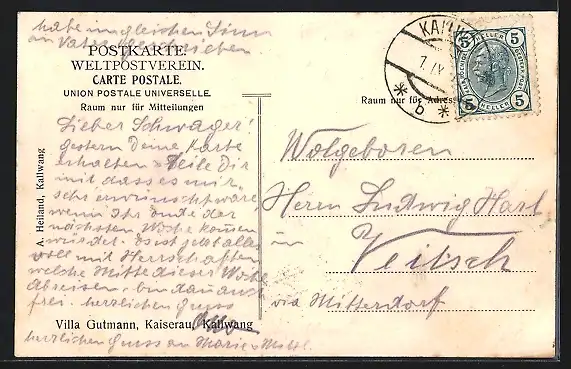 habe im gleichen Sinn
an Vater geschrieben
POSTKARTE.
WELTPOSTVEREIN.
CARTE POSTALE.
UNION POSTALE UNIVERSELLE.
Raum nur für Mitteilungen
Raum nur für Adresse
5 5
HELLER
5 HELLER 5
KAL
1 IX
* b *
A. Heiland, Kallwang
Lieber Schwager!
gestern deine Karte
erhalten & teile Dir
mit dass es mir
sehr erwünscht wäre
wenn Ihr ende der
nächsten Woche kommen
würdet. Es ist jetzt alles
voll mit Herrschaften
welche Mitte dieser Woche
abreisen. bin dan auch
frei. herzlichen Gruss
Wolgeboren
Herrn Ludwig Harl
in
Veitsch
via Mitterdorf
Villa Gutmann, Kaiserau, Kallwang
herzlichen Gruss an Marie &